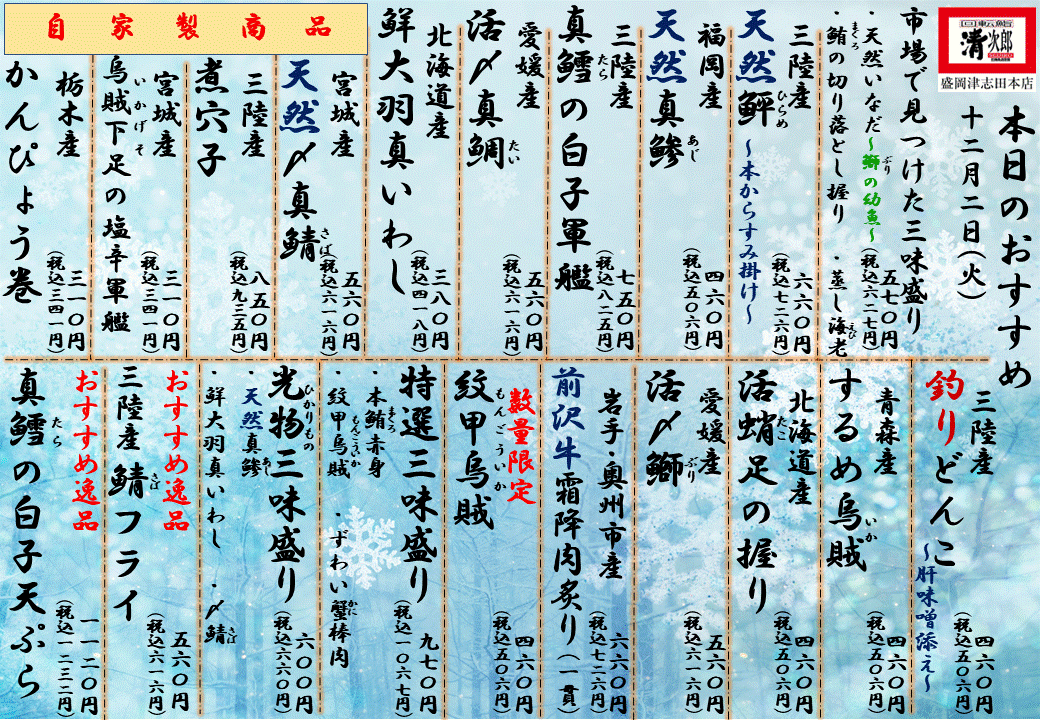 回転鮨
清次郎
盛岡津志田本店
本日のおすすめ
十二月二日(火)
市場で見つけた三味盛り
・天然いなだ～鰤の幼魚～
ぶり
・鮪の切り落とし握り ・蒸し海老
まぐろ
えび
五七〇円
(税込六二七円)
三陸産
天然鮃
ひらめ
～本からすみ掛け～
六六〇円
(税込七二六円)
福岡産
天然真鯵
あじ
四六〇円
(税込五〇六円)
三陸産
真鱈の白子軍艦
たら
七五〇円
(税込八二五円)
愛媛産
活〆真鯛
たい
五六〇円
(税込六一六円)
北海道産
鮮大羽真いわし
三八〇円
(税込四一八円)
自家製商品
宮城産
天然〆真鯖
さば
五六〇円
(税込六一六円)
三陸産
煮穴子
八五〇円
(税込九三五円)
宮城産
烏賊下足の塩辛軍艦
いかげそ
三一〇円
(税込三四一円)
栃木産
かんぴょう巻
三一〇円
(税込三四一円)
三陸産
釣りどんこ
～肝味噌添え～
四六〇円
(税込五〇六円)
青森産
するめ烏賊
いか
四六〇円
(税込五〇六円)
北海道産
活蛸足の握り
たこ
四六〇円
(税込五〇六円)
愛媛産
活〆鰤
ぶり
五六〇円
(税込六一六円)
岩手・奥州市産
前沢牛霜降肉炙り(一貫)
六六〇円
(税込七二六円)
数量限定
紋甲烏賊
もんごういか
四六〇円
(税込五〇六円)
特選三味盛り
・本鮪赤身
まぐろ
・紋甲烏賊 ・ずわい蟹棒肉
もんごういか
かに
九七〇円
(税込一〇六七円)
光物三味盛り
ひかりもの
・天然真鯵
あじ
・鮮大羽真いわし ・〆鯖
さば
六〇〇円
(税込六六〇円)
おすすめ逸品
三陸産 鯖フライ
さば
五六〇円
(税込六一六円)
おすすめ逸品
真鱈の白子天ぷら
たら
一一二〇円
(税込一二三二円)